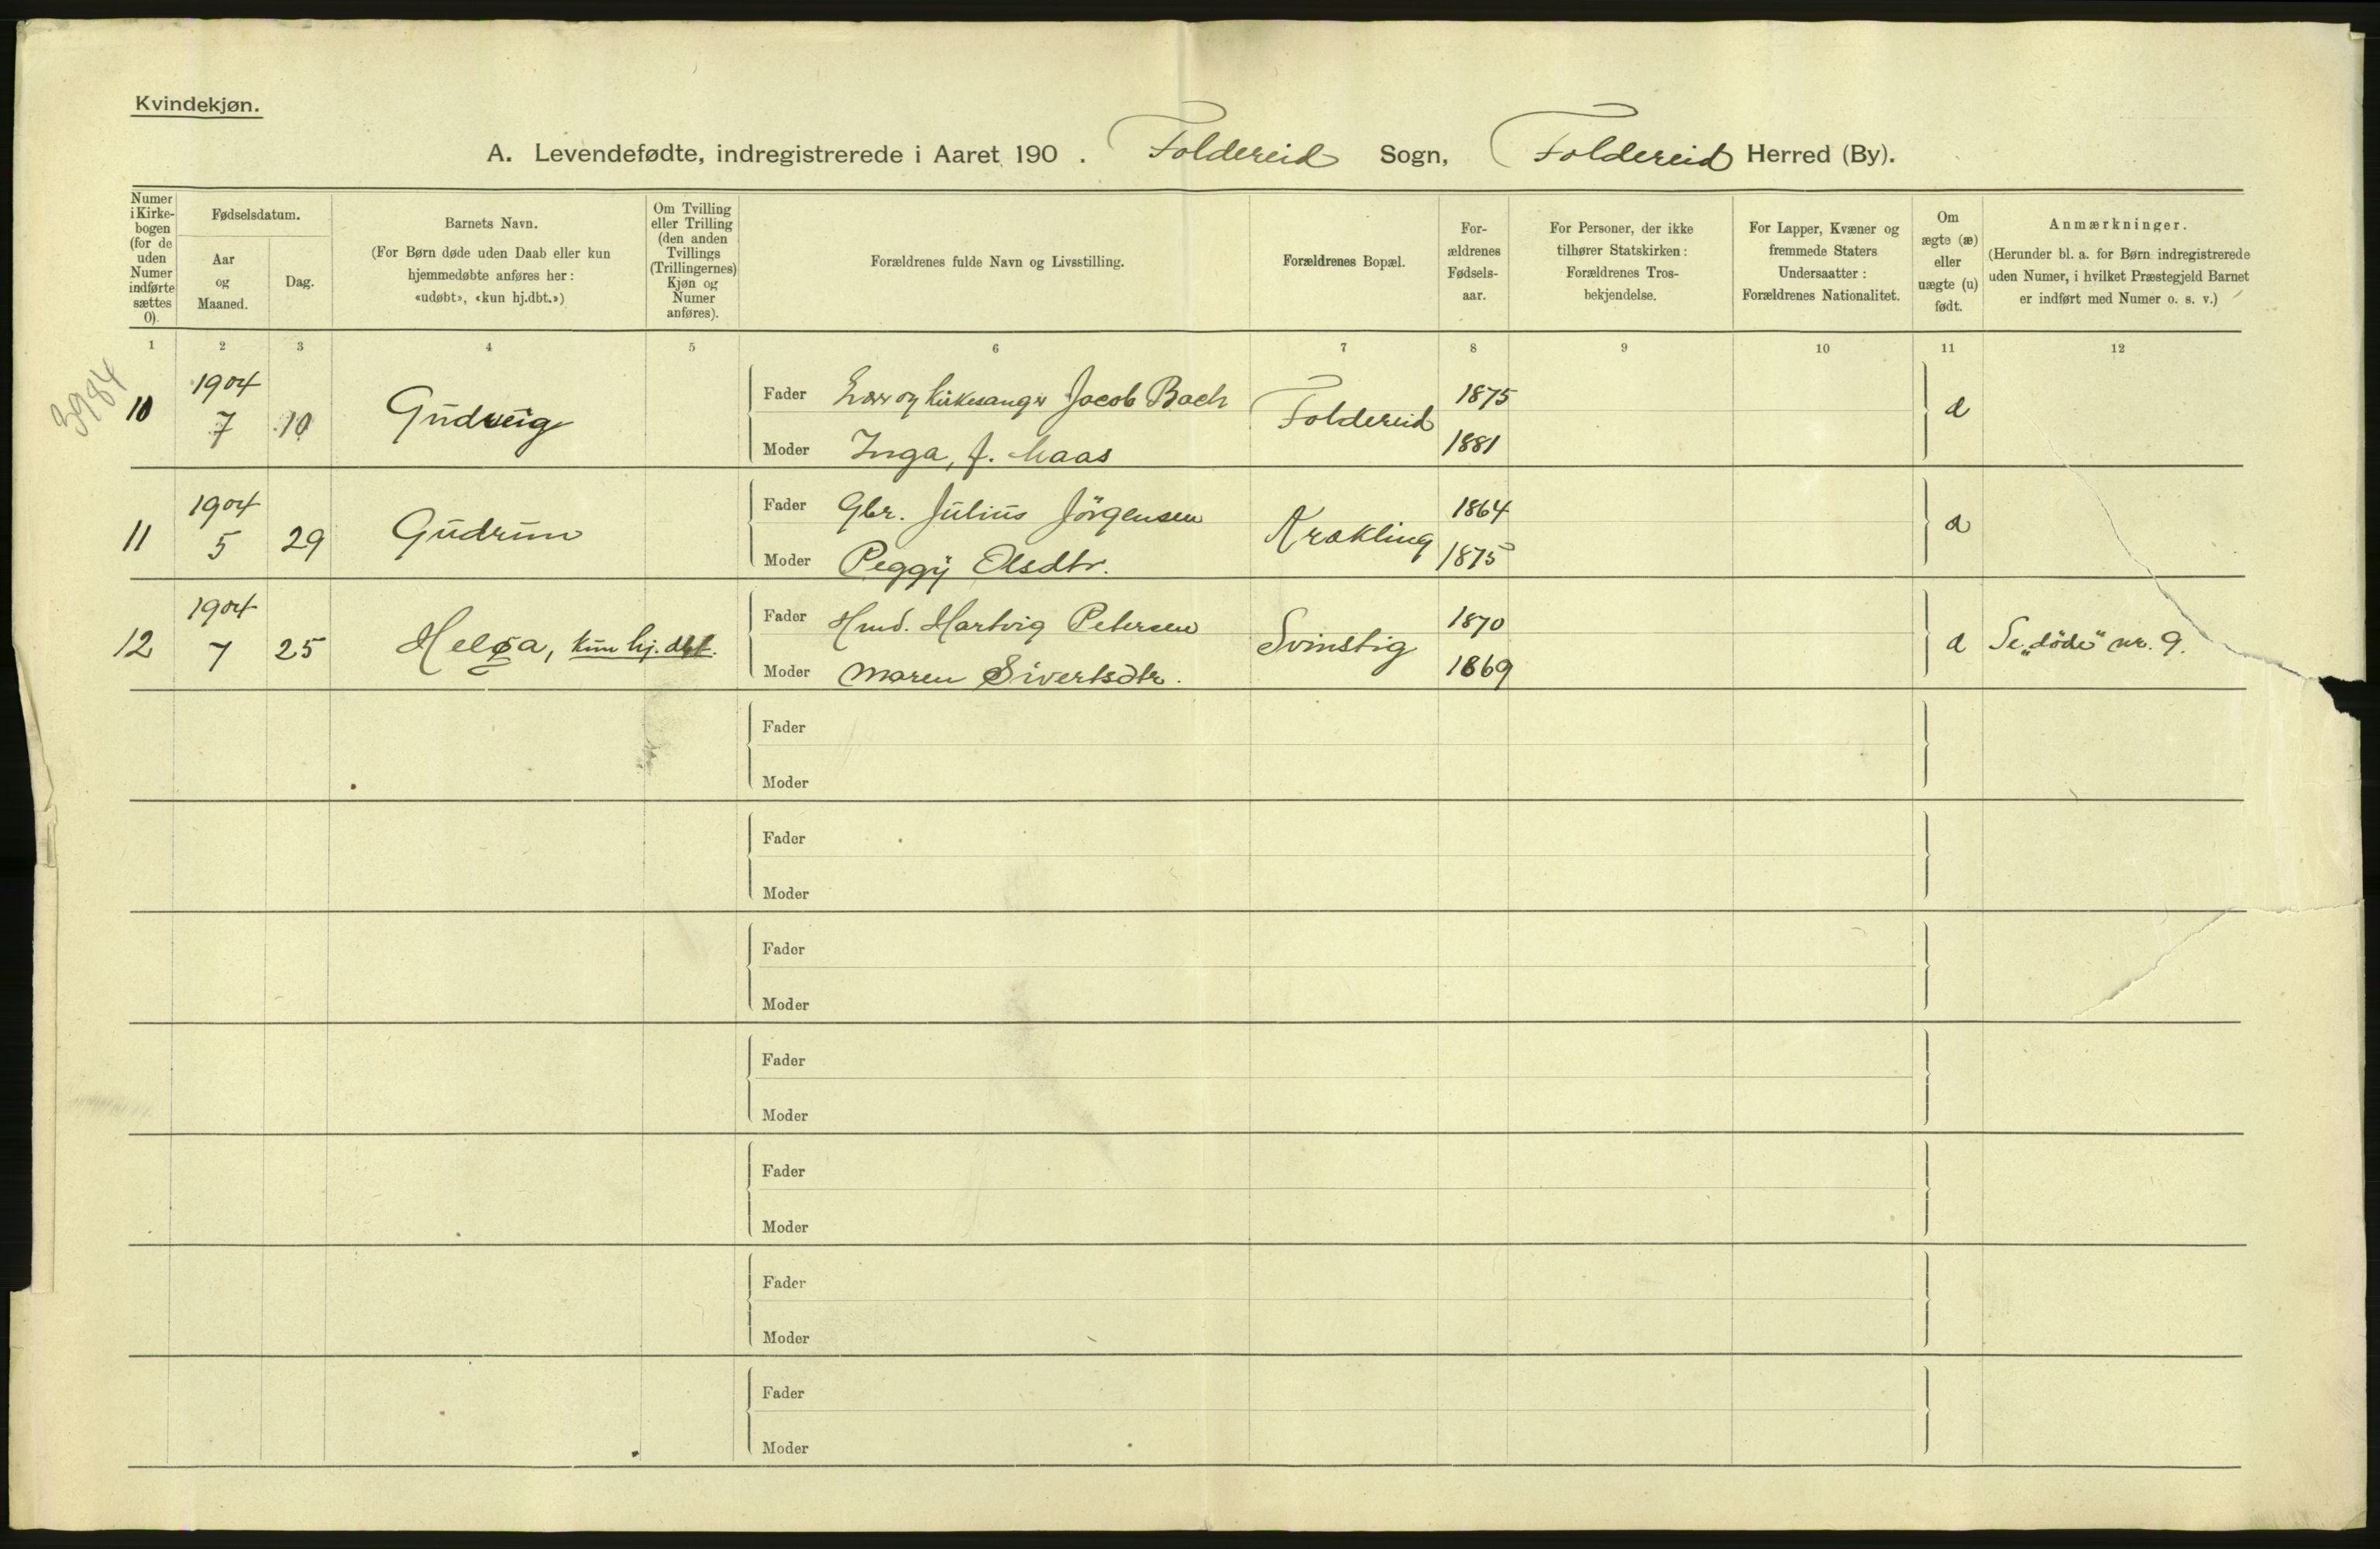 Kvindekjøn.
A. Levendefødte, indregistrerede i Aaret 190 . Foldereid Sogn, Foldereid Herred (By).
Numer i Kirke-bogen (for de uden Numer indførte sættes 0).
Fødselsdatum.
Aar og Maaned.
Dag.
Barnets Navn.
(For Børn døde uden Daab eller kun
hjemmedøbte anføres her:
«udøbt», «kun hj.dbt.»)
Om Tvilling
eller Trilling
(den anden
Tvillings
(Trillingernes)
Kjøn og
Numer
anføres).
Forældrenes fulde Navn og Livsstilling.
Forældrenes Bopæl.
For-
ældrenes
Fødsels-
aar.
For Personer, der ikke
tilhører Statskirken:
Forældrenes Tros-
bekjendelse.
For Lapper, Kvæner og
fremmede Staters
Undersaatter:
Forældrenes Nationalitet.
Om
ægte (æ)
eller
uægte (u)
født.
Anmærkninger.
(Herunder bl. a. for Børn indregistrerede
uden Numer, i hvilket Præstegjeld Barnet
er indført med Numer o. s. v.)
1 2 3 4 5 6 7 8 9 10 11 12
3984
10 1904 7 10 Gudveig
Fader Lær og kirkesanger Jacob Bach Foldereid 1875 æ
Moder Inga, f. Maas 1881
11 1904 5 29 Gudrun
Fader Gbr. Julius Jörgensen Krækling 1864 æ
Moder Peggy Olsdtr. 1875
12 1904 7 25 Helga, kun hj. dbt.
Fader Hmd. Hartvig Petersen Svinstig 1870 æ Se „döde" nr. 9.
Moder Maren Sivertsdtr. 1869
Fader
Moder
Fader
Moder
Fader
Moder
Fader
Moder
Fader
Moder
Fader
Moder
Fader
Moder